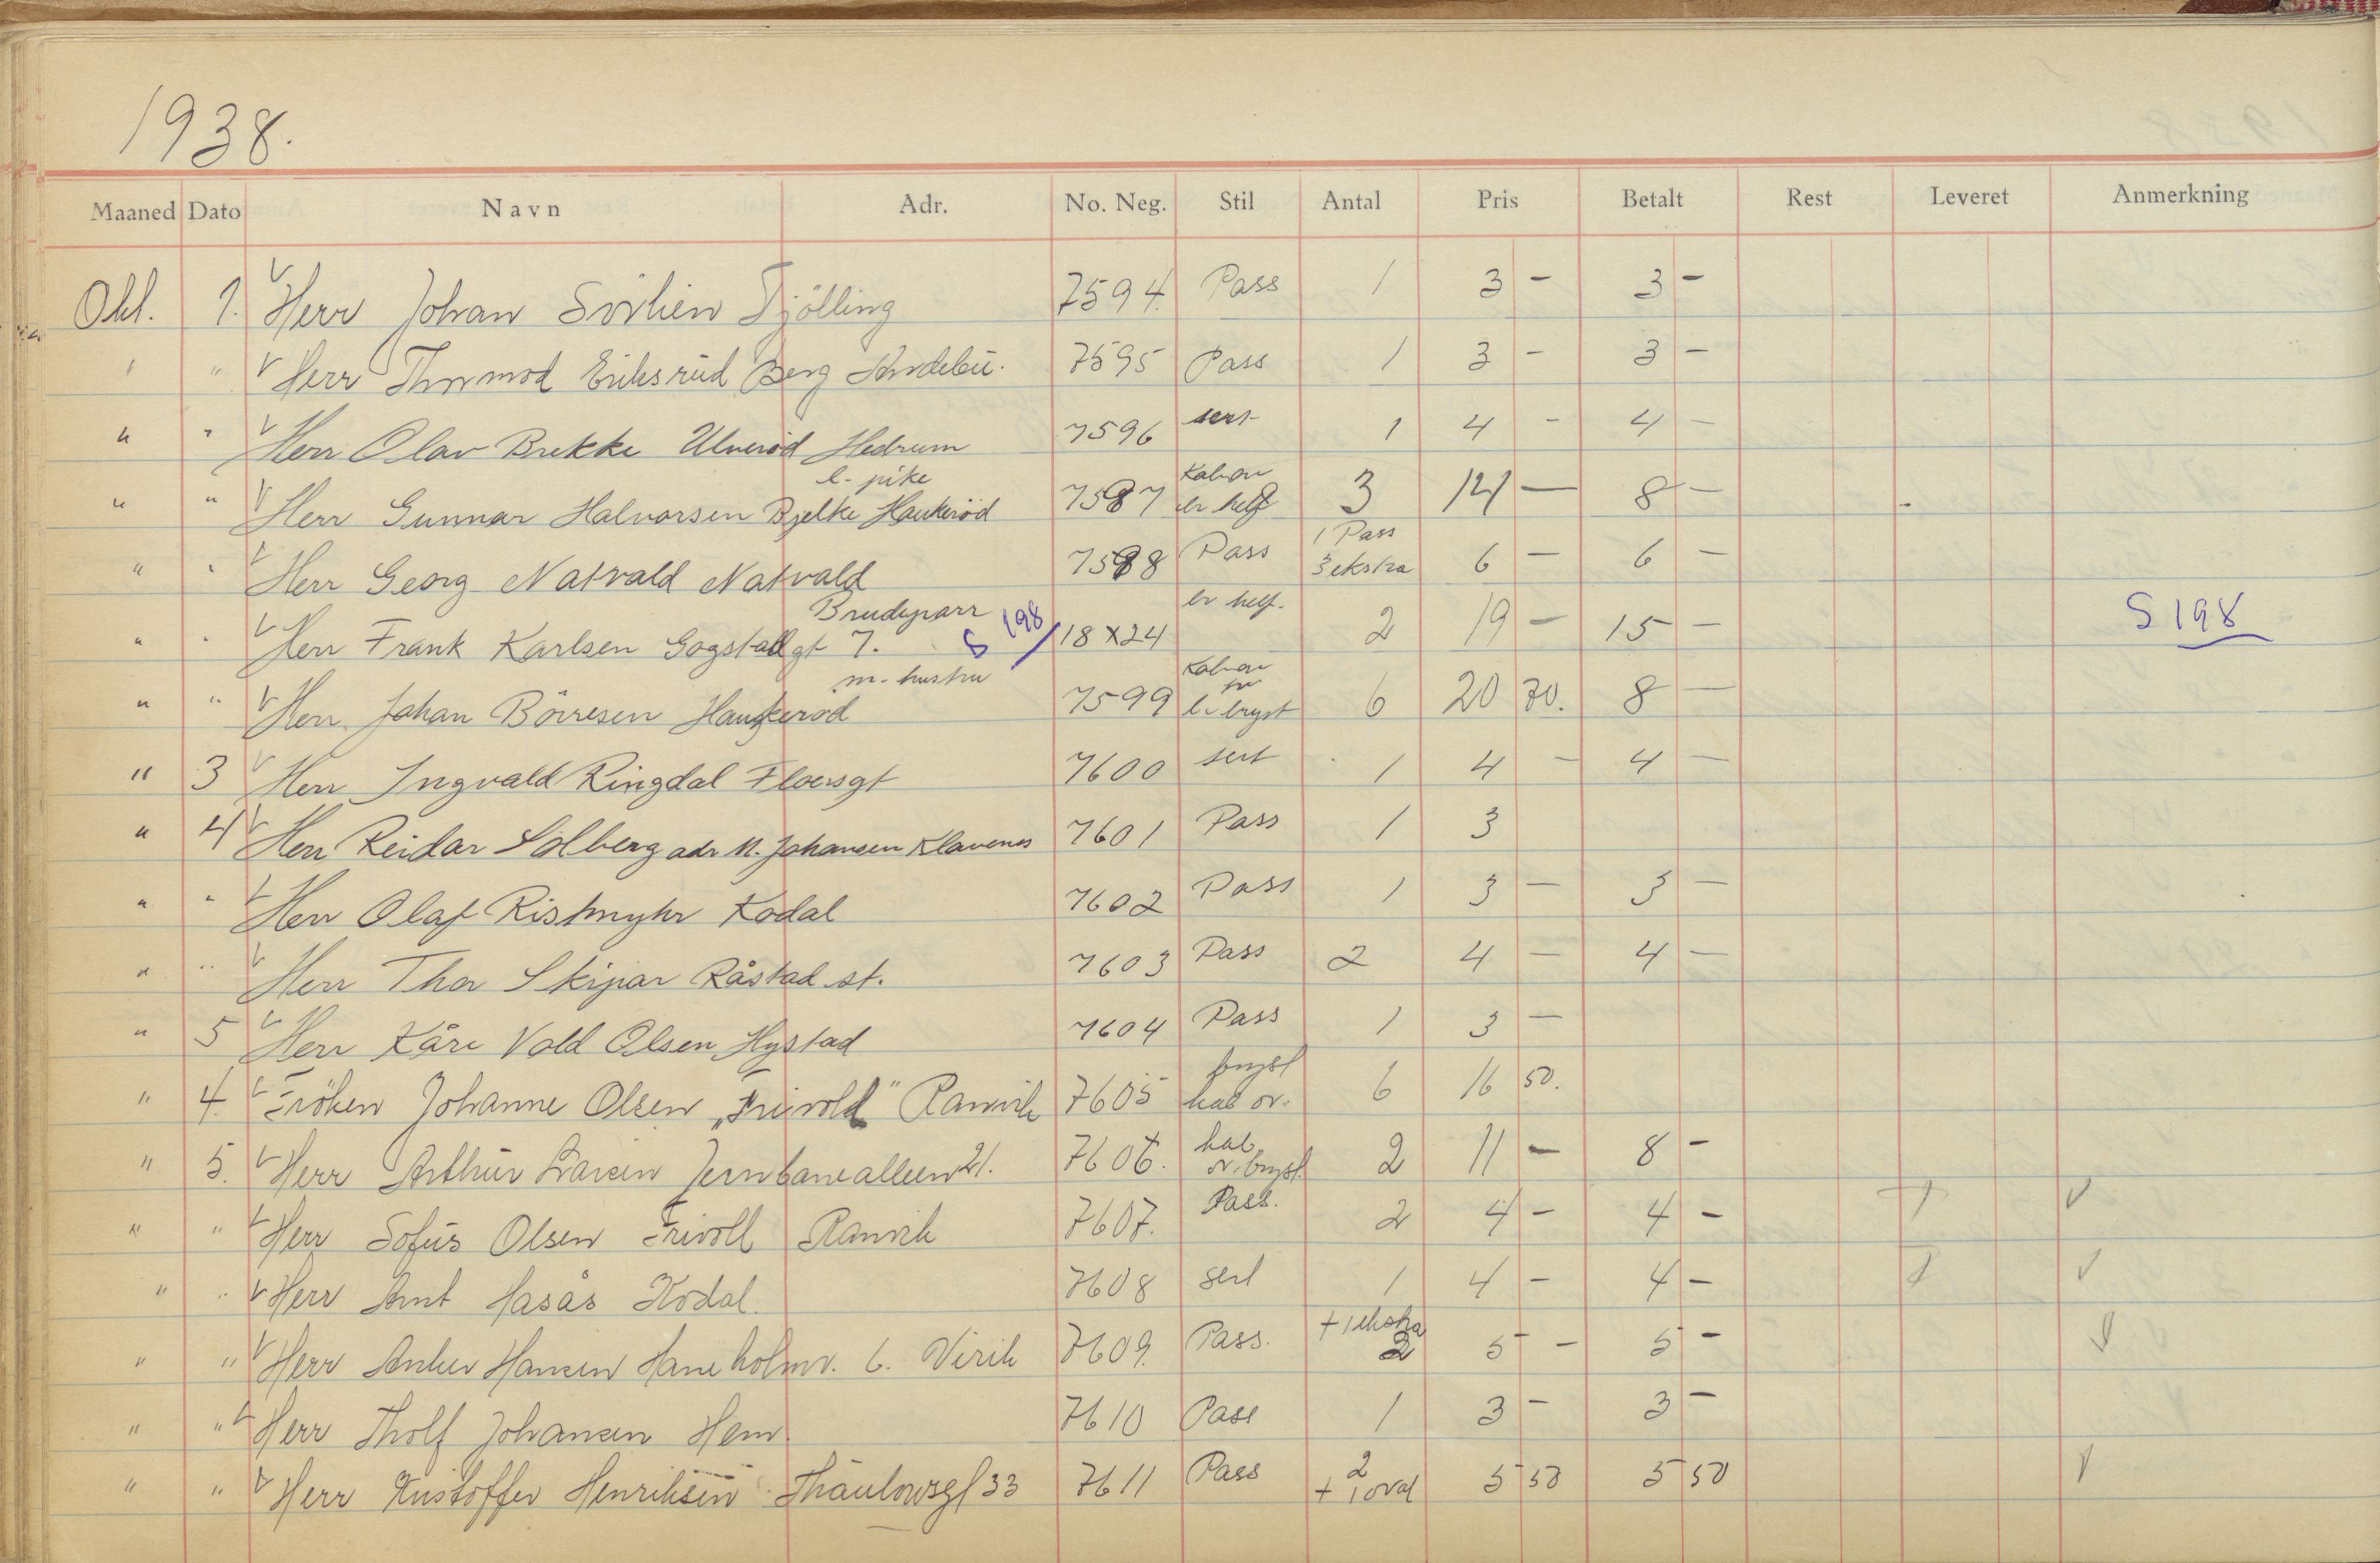 1938.
Maaned Dato Navn Adr. No. Neg. Stil Antal Pris Betalt Rest Leveret Anmerkning
Okt. 1. Herr Johan Tjölling 7594. Pass 1 3 - 3 -
" " Herr Thormod Eriksrud Berg Andebu. 7595 Pass 1 3 - 3 -
" " Herr Olav Brekke Ulveröd Hedrum 7596 sert 1 4 - 4 -
l. pike Kab ov
" " Herr Gunnar Halvorsen Bjelke Haukeröd 7597 br helf 3 14 - 8 -
1 Pass
" " Herr Georg Natvald Natvald 7598 Pass 3 ekstra 6 - 6 -
Brudeparr br helf.
" " Herr Frank Karlsen Gogstadgt 7. S 198 / 18 x 24 2 19 - 15 - S 198
m. hustru Kab ov
" " Herr Johan Börresen Haukeröd 7599 br bryst 6 20 70. 8 -
" 3 Herr Ingvald Ringdal Floersgt 7600 sert 1 4 - 4 -
" 4 Herr Reidar Solberg adr M. Johansen Klavenes 7601 Pass 1 3
" " Herr Olaf Ristmyhr Kodal 7602 Pass 1 3 - 3 -
" " Herr Thor Skipar Råstad st. 7603 Pass 2 4 - 4 -
" 5 Herr Kåre Vold Olsen Hystad 7604 Pass 1 3 -
bryst
" 4. Fröken Johanne Olsen "Frivold" Ranvik 7605 kab ov. 6 16 50.
kab
" 5. Herr Arthur Larsen Jernbanealleen 21. 7606. ov. bryst. 2 11 - 8 -
" " Herr Sofus Olsen Frivoll Ranvik 7607. Pass. 2 4 - 4 -
" " Herr Arnt Hasås Kodal. 7608 sert 1 4 - 4 -
+ 1 ekstra
" " Herr Anker Hansen Haneholmv. 6. Virik 7609. Pass. 2 5 - 5 -
" " Herr Tholf Johansen Hem 7610 Pass 1 3 - 3 -
2
" " Herr Kristoffer Henriksen Thaulowsgt 33 7611 Pass + 1 oval 5 50 5 50